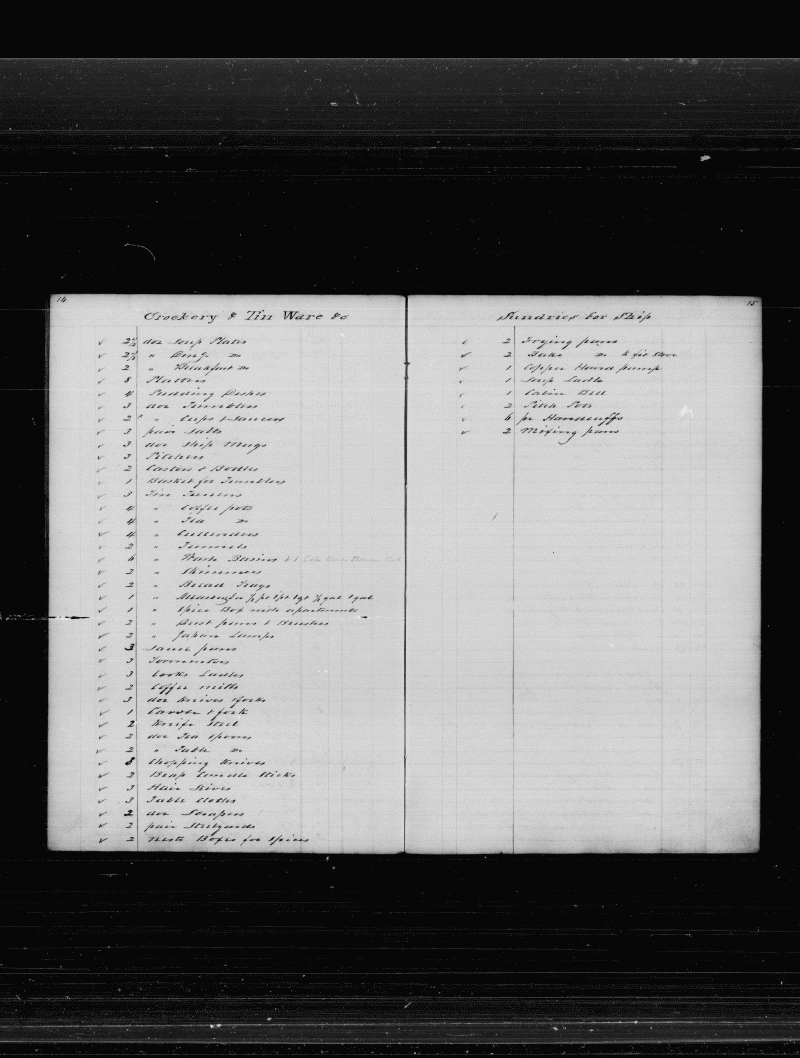 14
Crockery & Tin Ware &c
✓ 2½ doz Soup Plates
✓ 2½ " Ding do
✓ 2 " Breakfast do
✓ 8 Platters
✓ 4 Pudding Dishes
✓ 3 doz Tumblers
✓ 2 " Cups & Saucers
✓ 3 pair Salts
✓ 3 doz Ship Mugs
✓ 3 Pitchers
✓ 2 Castors & Bottles
✓ 1 Basket for Tumblers
✓ 3 Tin Tureens
✓ 4 " Coffee pots
✓ 4 " Tea do
✓ 4 " Cullenders
✓ 2 " Tunnels
✓ 6 " Wash Basins
✓ 2 " Skimmers
✓ 2 " Bread Trays
✓ 1 " Measures ½ pt 1 pt 1 qt ½ gal 1 gal
✓ 1 " Spice Box with apartments
✓ 2 " Dust pans & Brushes
✓ 2 " Japan Lamps
✓ 3 Sauce pans
✓ 3 Tormentors
✓ 3 Cooks Ladles
✓ 2 Coffee mills
✓ 3 doz Knives & forks
✓ 1 Carver & fork
✓ 2 Knife Steel
✓ 2 doz Tea Spoons
✓ 2 " Table do
✓ 8 Chopping Knives
✓ 2 Brass Candle Sticks
✓ 3 Hair Sieves
✓ 3 Table Cloths
✓ 2 doz Scrapers
✓ 2 pair Steelyards
✓ 2 Nests Boxes for Spices
15
Sundries for Ship
✓ 2 Frying pans
✓ 2 Bake do to fit Stove
✓ 1 Copper Hand pump
✓ 1 Soup Ladle
✓ 1 Cabin Bell
✓ 2 Pitch Pots
✓ 6 pr Handcuffs
✓ 2 Mixing pans